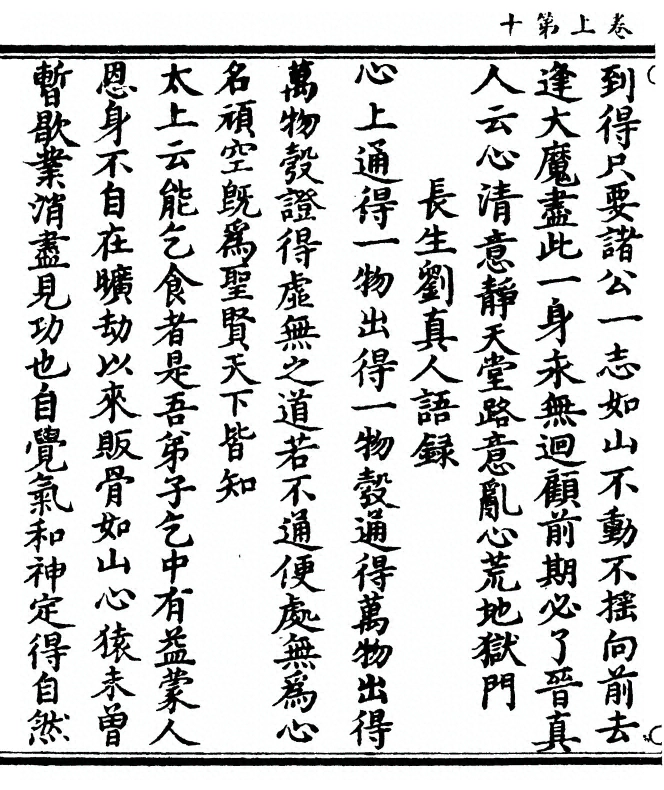 卷上第十
到得只要諸公一志如山不動不搖向前去
逢大魔盡此一身永無迴顧前期必了晉真
人云心清意靜天堂路意亂心荒地獄門
長生劉真人語錄
心上通得一物出得一物㲉通得萬物出得
萬物㲉證得虛無之道若不通便處無為心
名頑空既為聖賢天下皆知
太上云能乞食者是吾弟子乞中有益蒙人
恩身不自在曠劫以來販骨如山心猿未曾
暫歇業消盡見功也自覺氣和神定得自然